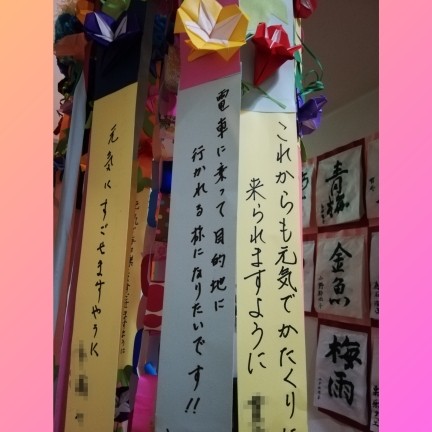 これからも元気でかたくりに
来られますように
電車に乗って目的地に
行かれる様になりたいです!!
元気にすごせますやうに
青梅
金魚
梅雨